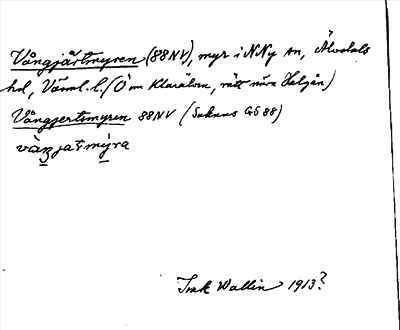 Vångjärtmyren (88NV), myr i NNy sn, Älvdals
hd, Värml. l. (Ö om Klarälven, rätt nära Höljån)
Vångjertsmyren 88NV (Saknas GS 88)
vàŋjatmýra
Isak Wallin 1913?